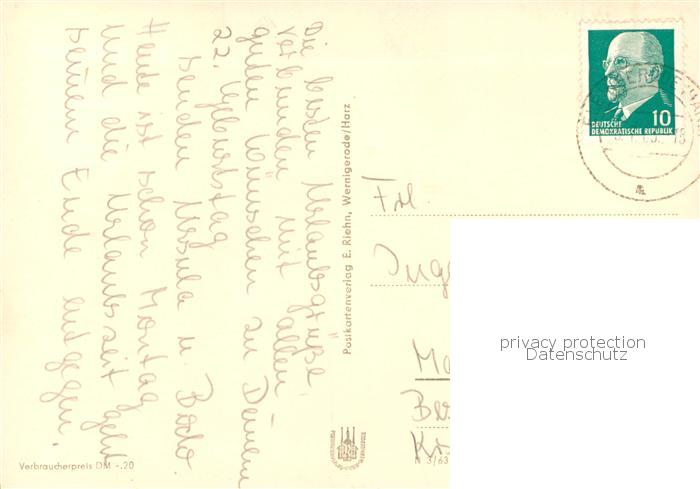 Die besten Urlaubsgrüße
verbunden mit allen
guten Wünschen zu Deinem
22. Geburtstag
senden Ursula u. Bodo.
Heute ist schon Montag
und die Urlaubszeit geht
seinem Ende entgegen.
Verbraucherpreis DM -.20
Postkartenverlag E. Riehn, Wernigerode/Harz
DEUTSCHE
DEMOKRATISCHE REPUBLIK
10
Frl.
Inge
privacy protection
Datenschutz
N 3/63